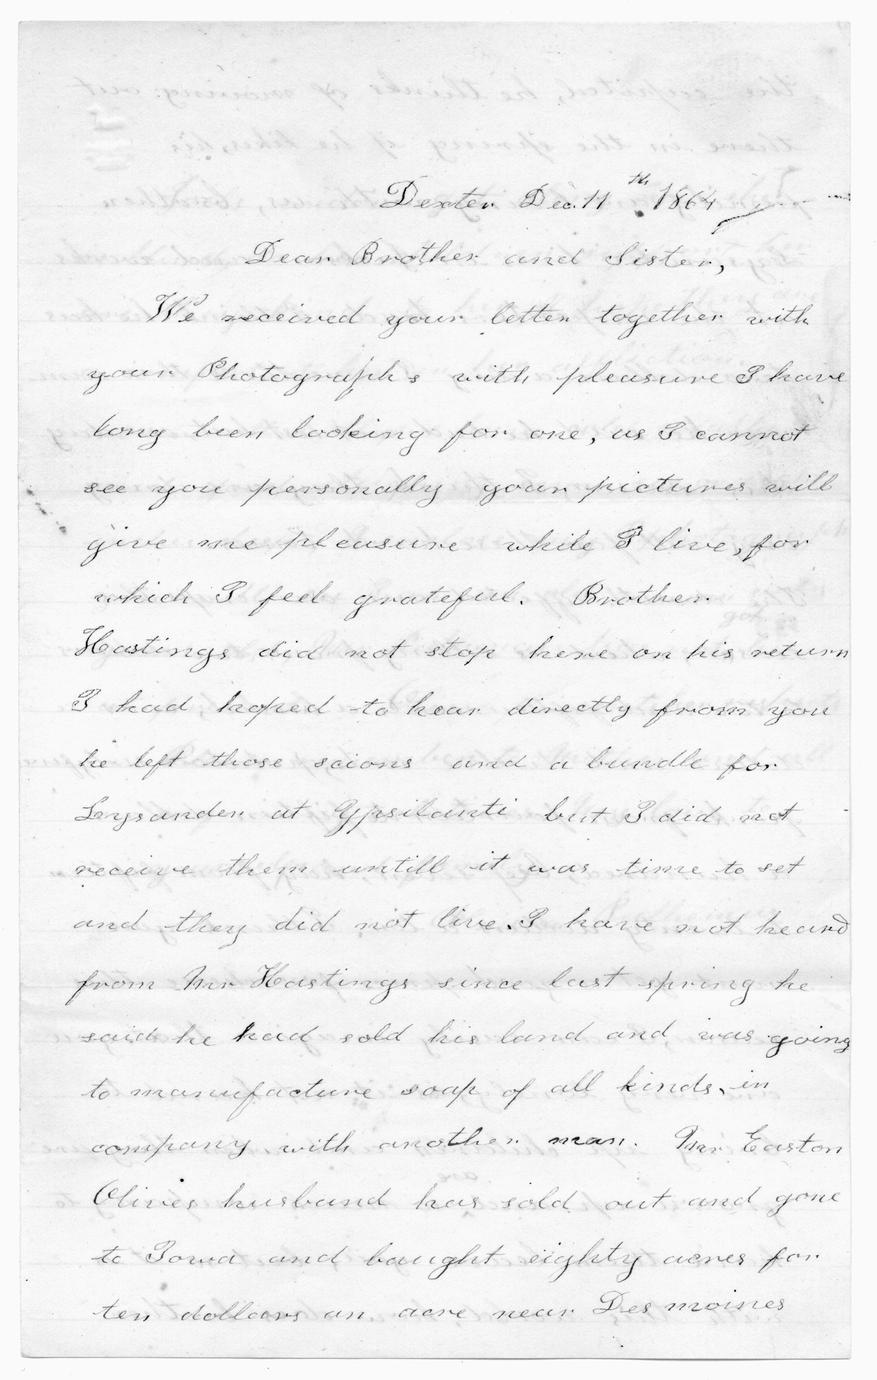 Dexter Dec. 11th 1864
Dear Brother and Sister,
We received your letter together with
your Photographs with pleasure I have
long been looking for one, as I cannot
see you personally your pictures will
give me pleasure while I live, for
which I feel grateful. Brother
Hastings did not stop here on his return
I had hoped to hear directly from you
he left those scions and a bundle for
Lysander at Ypsilanti but I did not
receive them untill it was time to set
and they did not live. I have not heard
from Mr Hastings since last spring he
said he had sold his land and was going
to manufacture soap of all kinds, in
company with another man. Mr Easton
Olives husband has sold out and gone
to Iowa and baught eighty acres for
ten dollars an acre near Des moines